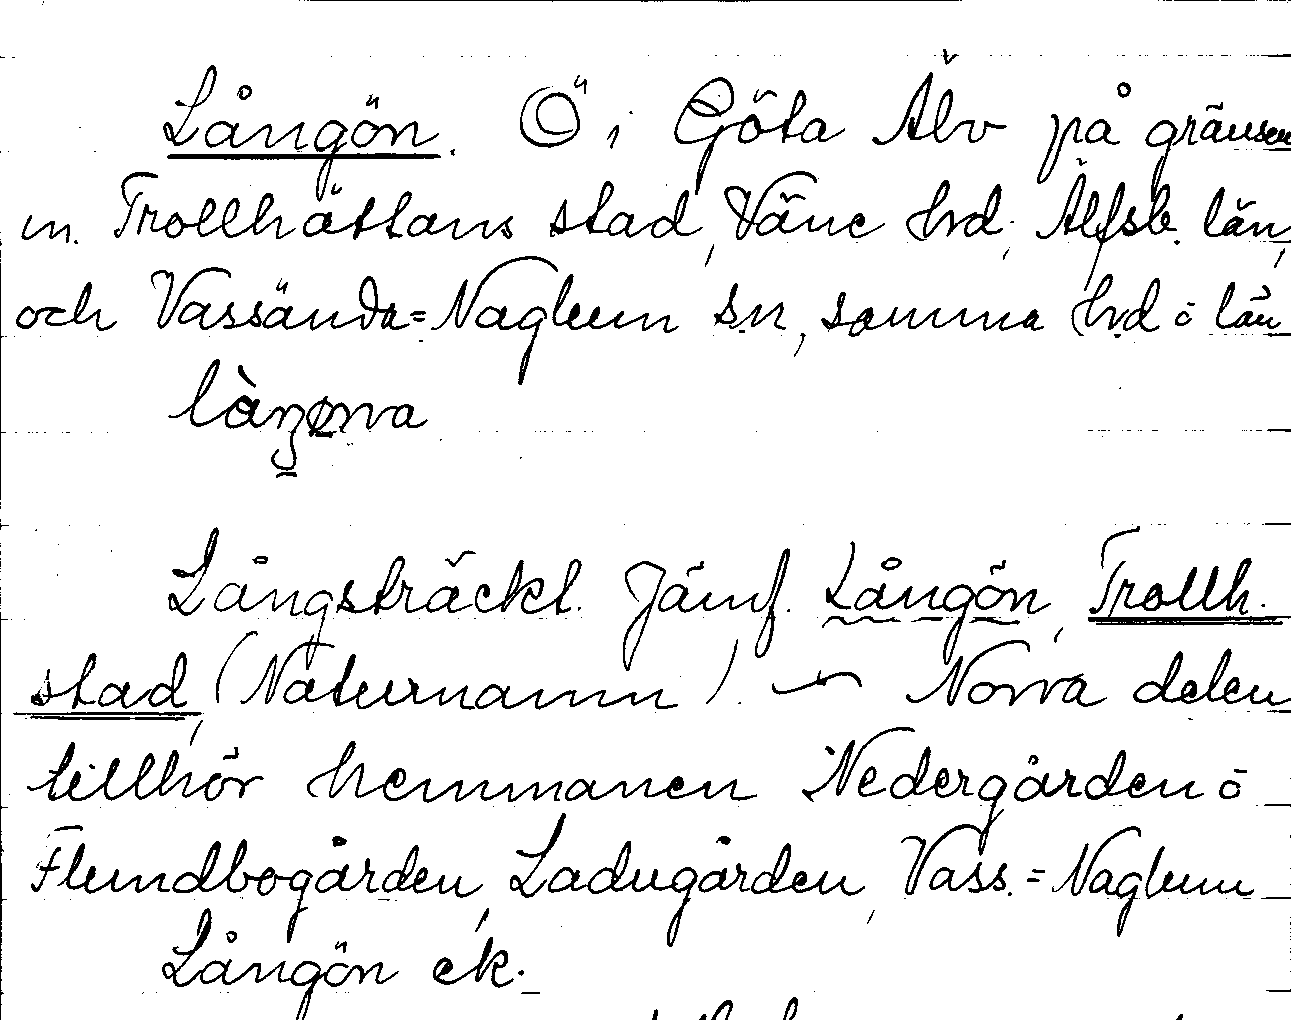 Långön. Ö i Göta Älv på gränsen
m. Trollhättans stad, Väne hd. Älfsb. län,
och Vassända=Naglum sn, samma hd o län

Långsträckt. Jämf. Långön, Trollh.
stad, (Naturnamn). — Norra delen
tillhör hemmanen Nedergården o
Flundbogården, Ladugården, Vass.=Naglum
Långön ek.